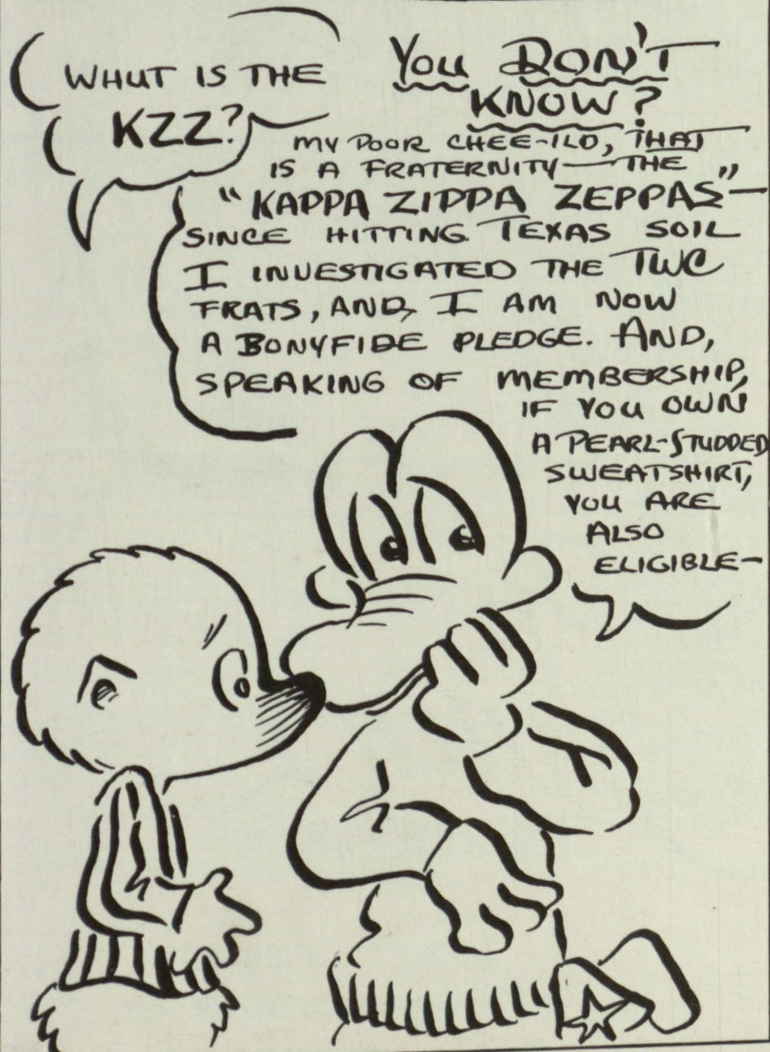 WHUT IS THE
KZZ?
YOU DON'T
KNOW?
MY POOR CHEE-ILD, THAT
IS A FRATERNITY—THE
"KAPPA ZIPPA ZEPPAS"—
SINCE HITTING TEXAS SOIL
I INVESTIGATED THE TWC
FRATS, AND, I AM NOW
A BONYFIDE PLEDGE. AND,
SPEAKING OF MEMBERSHIP,
IF YOU OWN
A PEARL-STUDDED
SWEATSHIRT,
YOU ARE
ALSO
ELIGIBLE—